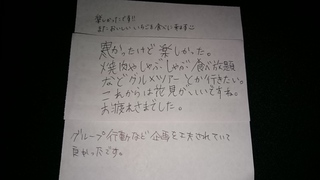 楽しかったです!!
またおいしいいちごを食べに来ます
寒かったけど楽しかった。
焼肉やしゃぶしゃぶ食べ放題
などグルメツアーとか行きたい。
これからは花見がいいですね。
お疲れさまでした。
グループ行動など企画を工夫されていて
良かったです。